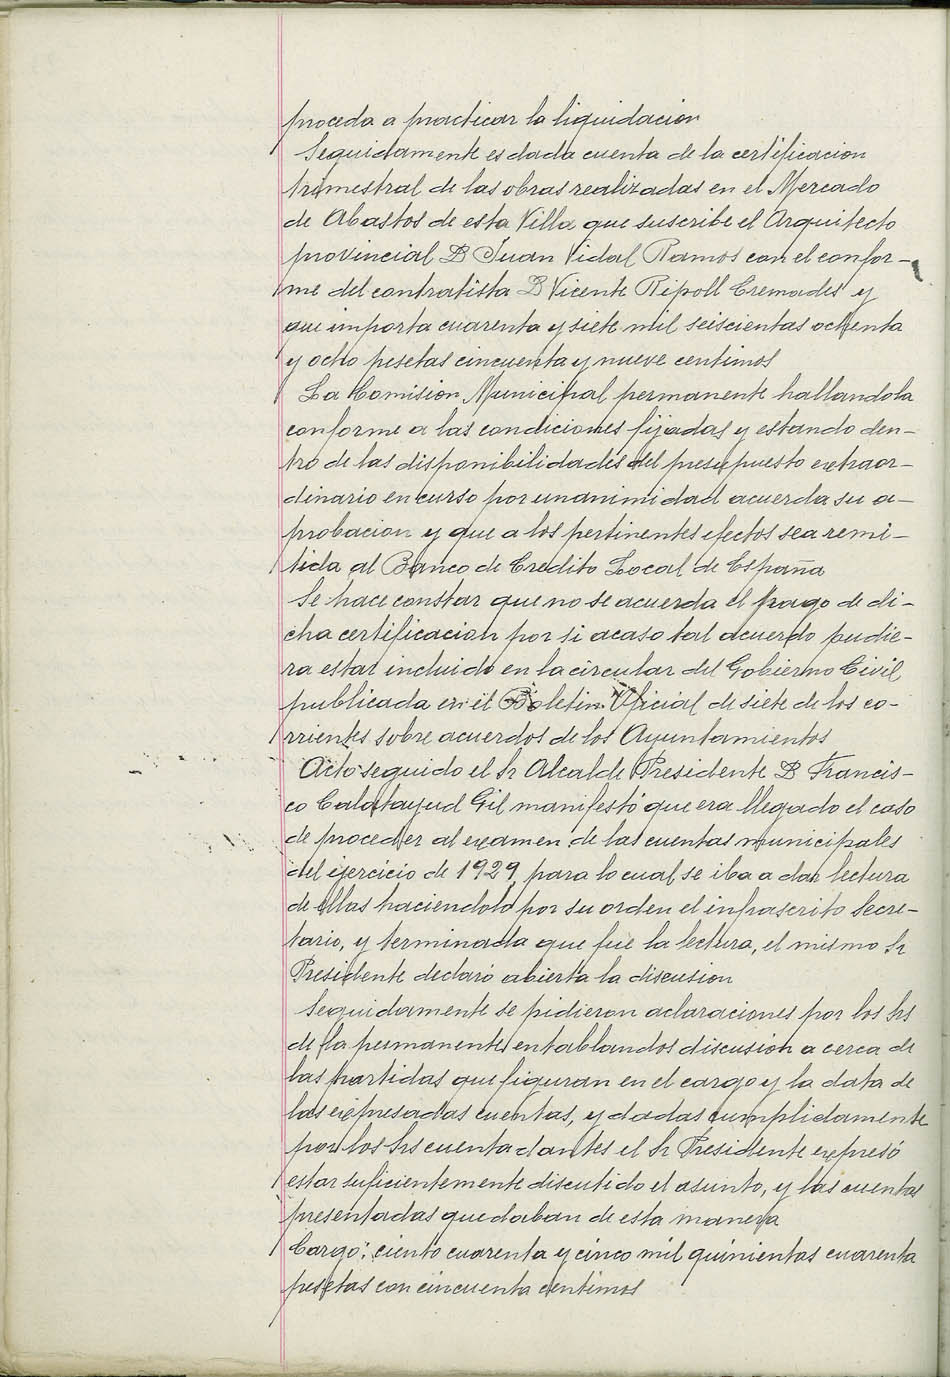 proceda a practicar la liquidacion
Seguidamente es dada cuenta de la certificacion
trimestral de las obras realizadas en el Mercado
de Abastos de esta Villa que suscribe el Arquitecto
provincial D Juan Vidal Ramos con el confor-
me del contratista D Vicente Ripoll Cremades y
que importa cuarenta y siete mil seiscientas ochenta
y ocho pesetas cincuenta y nueve centimos
La Comision Municipal permanente hallandola
conforme a las condiciones fijadas y estando den-
tro de las disponibilidades del presupuesto extraor-
dinario en curso por unanimidad acuerda su a-
probacion y que a los pertinentes efectos sea remi-
tida al Banco de Credito Local de España
Se hace constar que no se acuerda el pago de di-
cha certificacion por si acaso tal acuerdo pudie-
ra estar incluido en la circular del Gobierno Civil
publicada en el Boletin Oficial de siete de los co-
rrientes sobre acuerdos de los Ayuntamientos
Acto seguido el Sr Alcalde Presidente D Francis-
co Calatayud Gil manifestó que era llegado el caso
de proceder al examen de las cuentas municipales
del ejercicio de 1929, para lo cual se iba a dar lectura
de ellas haciendolo por su orden el infrascrito Secre-
tario, y terminada que fue la lectura, el mismo Sr
Presidente declaró abierta la discusion
Seguidamente se pidieron aclaraciones por los Srs
de la permanente entablandos discusion a cerca de
las partidas que figuran en el cargo y la data de
las expresadas cuentas, y dadas cumplidamente
por los Srs cuentadantes el Sr Presidente expresó
estar suficientemente discutido el asunto, y las cuentas
presentadas quedaban de esta manera
Cargo: ciento cuarenta y cinco mil quinientas cuarenta
pesetas con cincuenta centimos